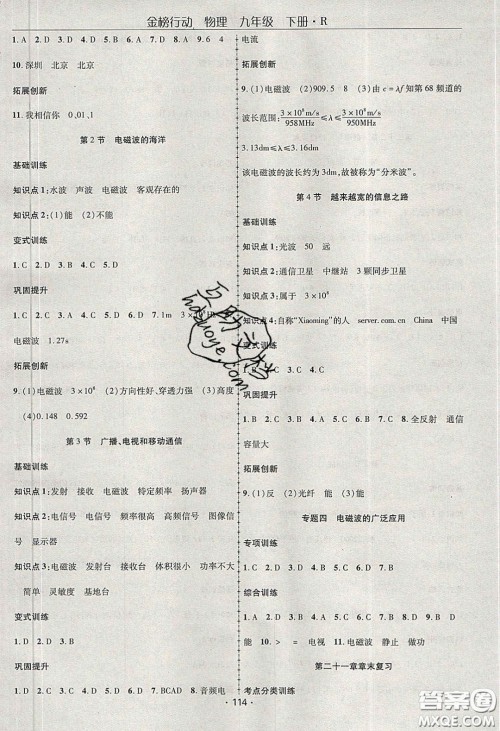 金榜行动 物理 九年级 下册·R
1.A 2.D 3.D 4.B 5.D 6.D 7.D 8.A 9.6 4
10.深圳 北京 北京
拓展创新
11.我相信你 0,01,1
第2节 电磁波的海洋
基础训练
知识点1:水波 声波 电磁波 客观存在的
知识点2:(1)能 (2)不能
变式训练
1.C 2.D 3.B 4.C 5.D
巩固提升
1.C 2.D 3.D 4.B 5.C 6.D 7.1m
电磁波 1.27s
拓展创新
9.(1)电磁波 3×10⁸ (2)方向性好、穿透力强 (3)高度
(4)0.148 0.592
第3节 广播、电视和移动通信
基础训练
知识点1:发射 接收 电磁波 特定频率 扬声器
知识点2:电信号 电信号 频率很高 高频信号 图像信
号 显示器
知识点3:电磁波 发射台 接收台 体积很小 功率不大
简单 灵敏度 基地台
变式训练
1.D 2.D 3.C 4.D
巩固提升
1.C 2.D 3.D 4.D 5.C 6.D 7.BCAD 8.音频电
电流
拓展创新
9.(1)电磁波 (2)909.5 8 (3)由c=λf知第68频道的
波长范围:3×10⁸m/s/958MHz≤λ≤3×10⁸m/s/950MHz
3.13dm≤λ≤3.16dm
该电磁波的波长约为3dm,故被称为“分米波”。
第4节 越来越宽的信息之路
基础训练
知识点1:光波 50 远
知识点2:通信卫星 中继站 3颗同步卫星
知识点3:属于 3×10⁸
知识点4:自称“Xiaoming”的人 server.com.cn China 中国
变式训练
2.C 3.C 4.C
巩固提升
1.B 2.A 3.C 4.C 5.D 6.C 7.C 8.全反射 通信
容量大
拓展创新
9.(1)反 (2)光纤 能 (3)能
专题四 电磁波的广泛应用
专项训练
1.D 2.D 3.D 4.B 5.C 6.D 7.C 8.D
综合训练
1.D 2.D 3.A 4.B 5.C 6.D 7.C 8.B 9.不能
能 10.> = 电视 11.电磁波 静止 做功
第二十一章章末复习
考点分类训练
·114·
答案圈
MXQE.COM